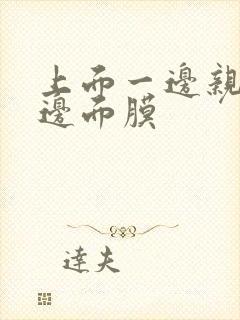 上而一邊親
邊而膜
達夫